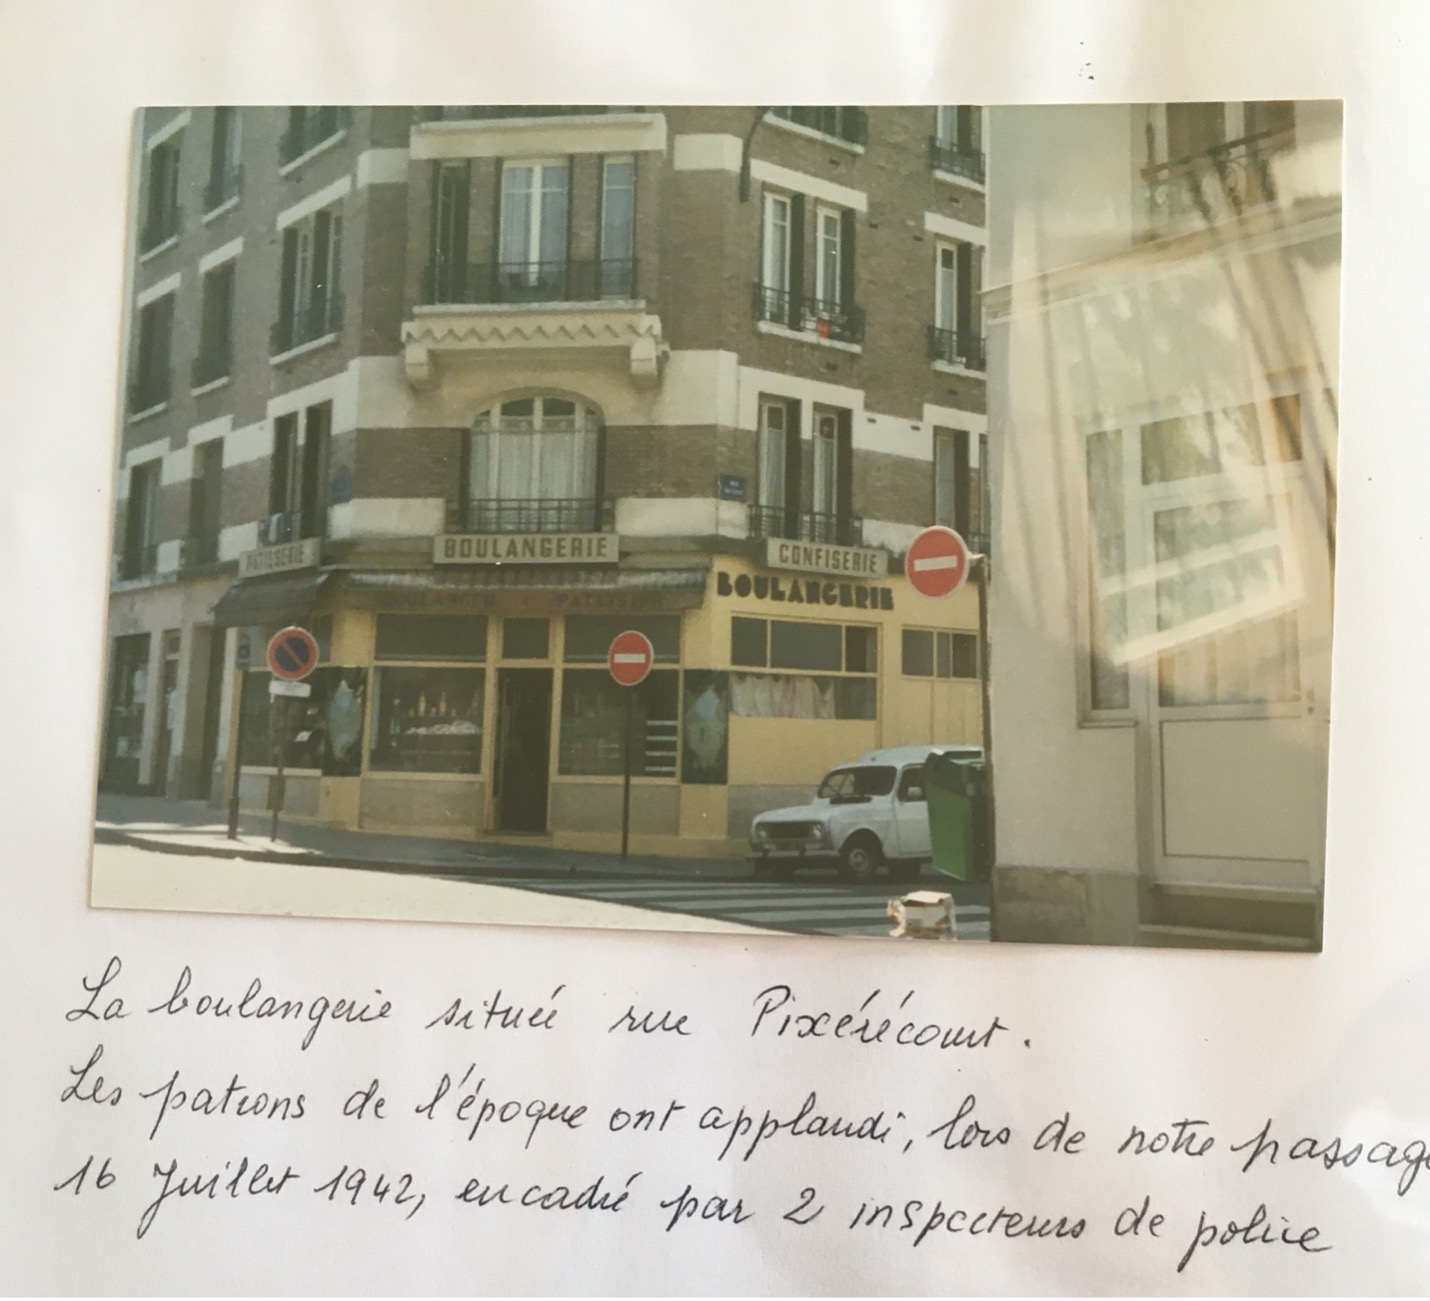 PATISSERIE
BOULANGERIE
CONFISERIE
BOULANGERIE
BOULANGER PATISSIER
RUE
La boulangerie située rue Pixérécourt.
Les patrons de l'époque ont applaudi, lors de notre passage
16 Juillet 1942, encadré par 2 inspecteurs de police